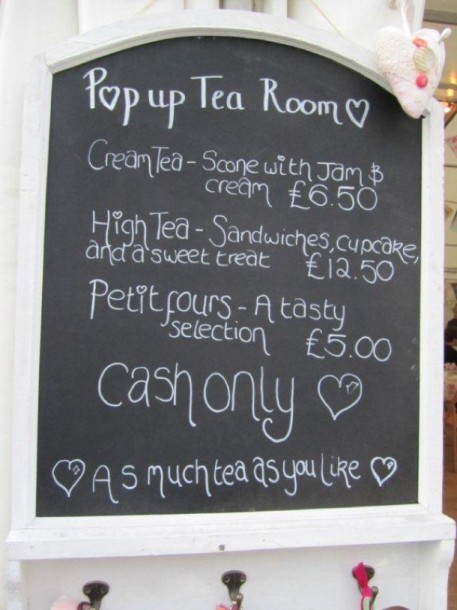 Pop up Tea Room
Cream Tea - Scone with Jam &
cream £6.50
High Tea - Sandwiches, cupcake,
and a sweet treat £12.50
Petit fours - A tasty
selection £5.00
Cash only
As much tea as you like